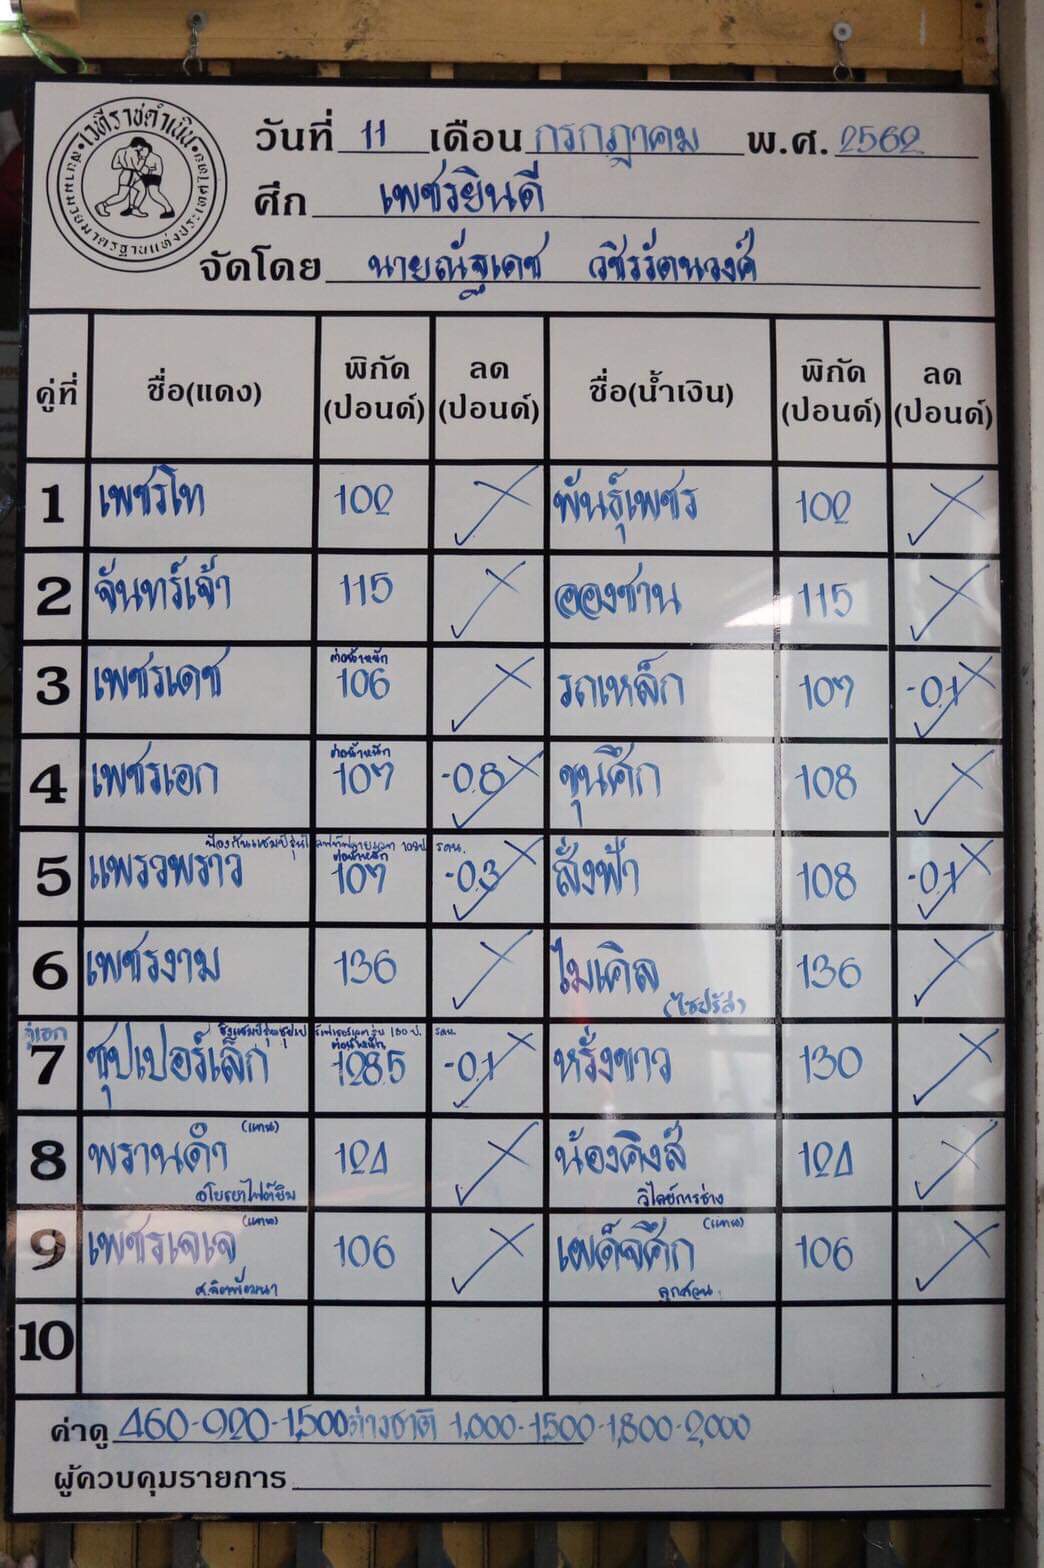 เวทีราชดำเนิน
วันที่ 11 เดือน กรกฎาคม พ.ศ. 2562
ศึก เพชรยินดี
จัดโดย นายณัฐเดช วชิรรัตนวงศ์
คู่ที่ ชื่อ(แดง) พิกัด (ปอนด์) ลด (ปอนด์) ชื่อ(น้ำเงิน) พิกัด (ปอนด์) ลด (ปอนด์)
1 เพชรโท 102 พันธุ์เพชร 102
2 จันทร์เจ้า 115 อองซาน 115
ต่อน้ำหนัก
3 เพชรเดช 106 รถเหล็ก 107 -0.1
ต่อน้ำหนัก
4 เพชรเอก 107 -0.8 ขุนศึก 108
ต่อน้ำหนัก
5 แพรวพราว 107 -0.3 สั่งฟ้า 108 -0.1
6 เพชรงาม 136 ไมเคิล 136
(ไซปรัส)
คู่เอก
ต่อน้ำหนัก
7 ซุปเปอร์เล็ก 128.5 -0.1 หรั่งขาว 130
(แทน)
8 พรานดำ 124 น้องคิงส์ 124
อโยธยาไฟต์ยิม วิไลย์การช่าง
(แทน) (แทน)
9 เพชรเจเจ 106 เผด็จศึก 106
ลูกสวน
10
ค่าดู 460-920-1,500 ต่างชาติ 1,000-1,500-1,800-2,000
ผู้ควบคุมรายการ